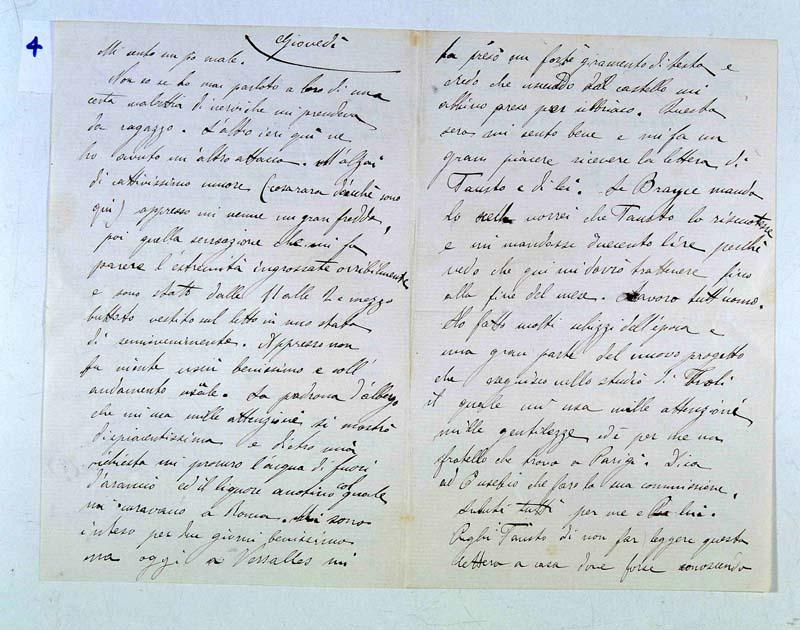 4
Giovedì
Mi sento un po male.
Non so se ho mai parlato a loro di una
certa malattia di nervi che mi prendeva
da ragazzo. L'altro ieri quì ne
ho avuto un altro attacco. M'alzai
di cattivissimo umore (cosa rara dacchè sono
quì) appresso mi venne un gran freddo,
poi quella sensazione che mi fa
parere l'estremità ingrossate orribilmente
e sono stato dalle 11 alle 2 e mezzo
buttato vestito sul letto in uno stato
di semisvenimente. Appresso non
fu niente uscii benissimo e coll'
andamento usuale. La padrona d'albergo
che mi usa mille attenzioni si mostrò
dispiacentissima e dietro mia
richiesta mi procurò l'acqua di fiori
d'arancio ed il liquore anotino col quale
mi curavano a Roma. Mi sono
inteso per due giorni benissimo
ma oggi a Versalles mi
ha preso un forte giramento di testa e
credo che uscendo dal castello mi
abbino preso per ubbriaco. Questa
sera mi sento bene e mi fa un
gran piacere ricevere la lettera di
Fausto e di lei. Se manda
lo vorrei che Fausto lo riscuotesse
e mi mandasse duecento lire perchè
vedo che qui mi dovrò trattenere fino
alla fine del mese. Lavoro tutt'uomo.
Ho fatto molti schizzi dell'epoca e
una gran parte del nuovo progetto
che eseguisco nello studio di Tivoli
il quale mi usa mille attenzioni
mille gentilezze ed è per me un
fratello che trovo a Parigi. Dica
ad Eusepio che farò la sua commissione.
Saluti tutti per me e lui.
Preghi Fausto di non far leggere questa
lettera a casa dove forse conoscendo